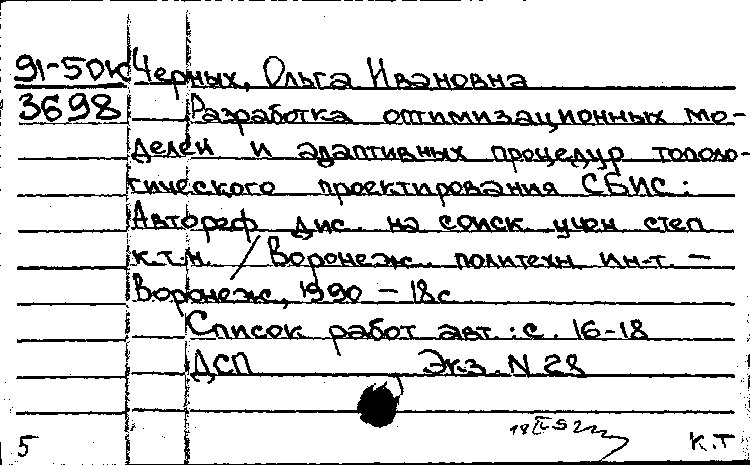 91-50к Черных, Ольга Ивановна
3698 Разработка оптимизационных мо-
делей и адаптивных процедур тополо-
гического проектирования СБИС:
Автореф дис. на соиск учен степ
к.т.н. / Воронеж. политехн ин-т. —
Воронеж, 1990 — 18с
Список работ авт.: с. 16-18
ДСП Экз. N 28
5 К.Т